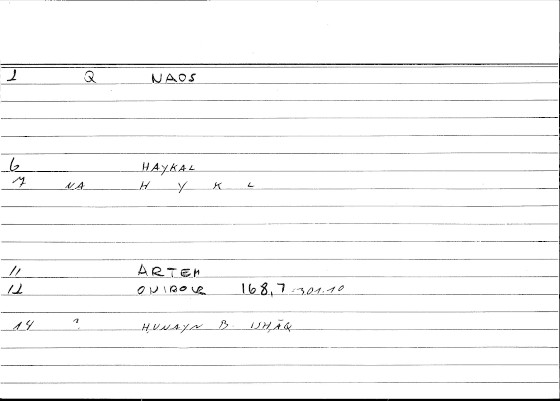 1 Q NAOS
6 HAYKAL
7 NA H Y K L
11 ARTEM
12 ONIROCR 168,7 301.10
14 ? ḤUNAYN B. ISḤĀQ